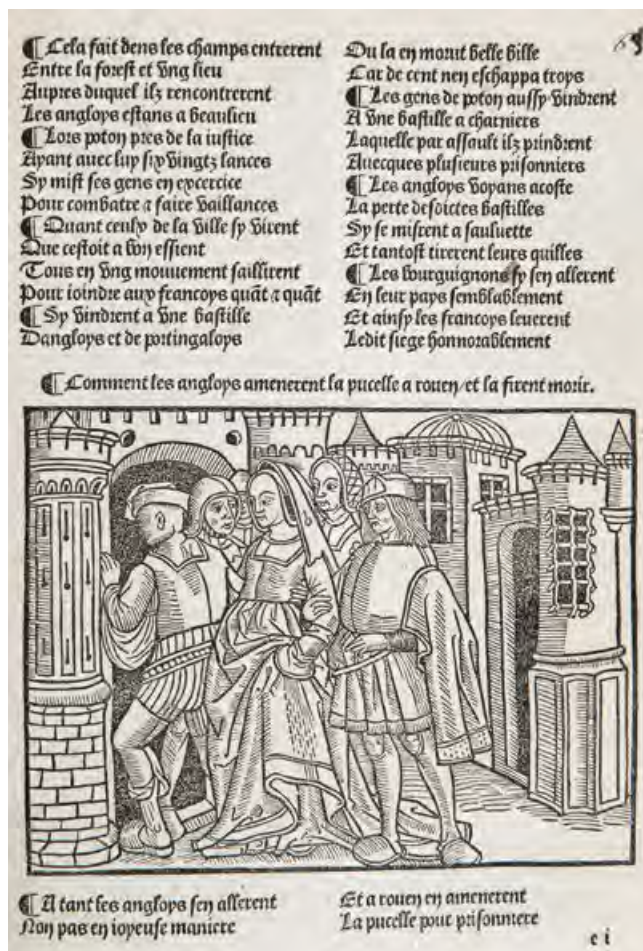 ¶ Cela fait dens les champs entrerent
Entre la forest et vng lieu
Aupres duquel ilz rencontrerent
Les angloys estans a beaulieu
¶ Lors poton pres de la iustice
Ayant auec luy six vingtz lances
Sy mist ses gens en exercice
Pour combatre a faire vaillances
¶ Quant ceulx de la ville sy virent
Que cestoit a bon essient
Tous en vng mouuement saillirent
Pour ioindre aux francoys quāt a quāt
¶ Sy vindrent a vne bastille
Dangloys et de portingaloys
Ou la en morut belle bille
Car de cent nen eschappa troys
¶ Les gens de poton aussy vindrent
A vne bastille a charniers
Laquelle par assault ilz prindrent
Auecques plusieurs prisonniers
¶ Les angloys voyans acoste
La perte desdictes bastilles
Sy se misrent a sauluette
Et tantost tirerent leurs quilles
¶ Les bourguignons sy sen allerent
En leur pays semblablement
Et ainsy les francoys leuerent
Ledit siege honnorablement
¶ Comment les angloys amenerent la pucelle a rouen/et la firent morir.
¶ A tant les angloys sen allerent
Non pas en ioyeuse maniere
Et a rouen en amenerent
La pucelle pour prisonniere
e i